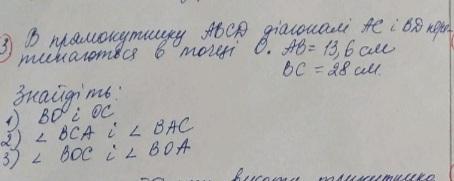 3) В прямокутнику ABCD діагоналі AC і BD пере-
тинаються в точці O. AB = 13,6 см
BC = 28 см.
Знайдіть:
1) BO і OC
2) ∠ BCA і ∠ BAC
3) ∠ BOC і ∠ BOA
висота трикутника